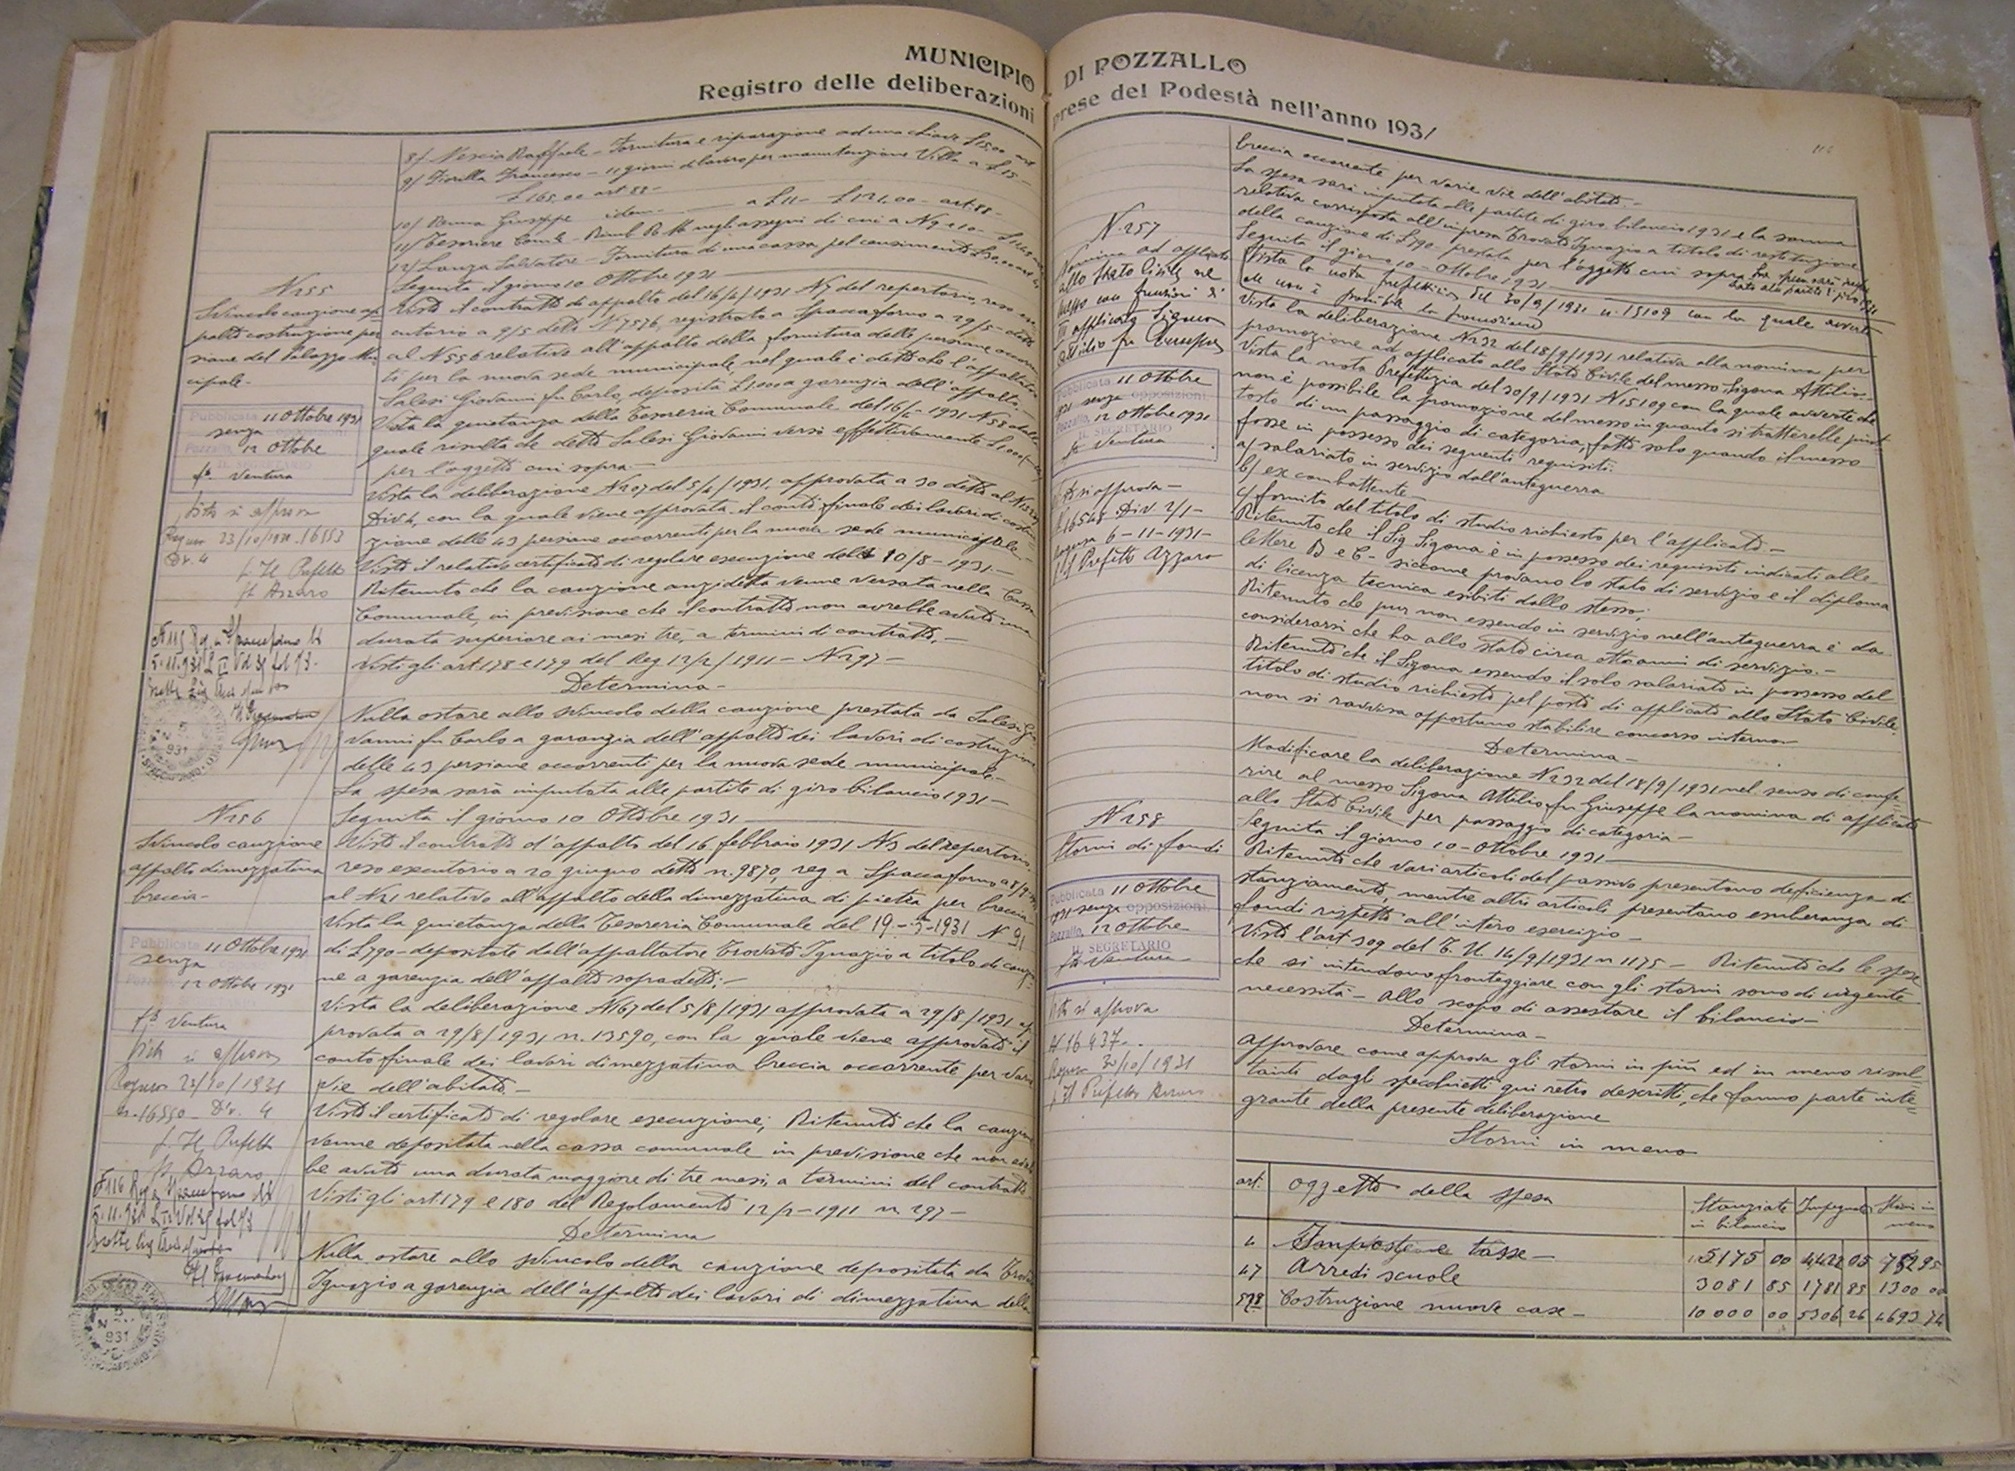 MUNICIPIO DI POZZALLO
Registro delle deliberazioni prese del Podestà nell'anno 1931
8/ Nescia Raffaele - Fornitura e riparazione ad una chiave £ 15,00 art
9/ Fiorilla Francesco - 11 giorni di lavoro per manutenzione Villa a £ 15 -
£ 165,00 art 88 -
10/ Giuseppe idem a £ 11 - £ 121,00 - art 88 -
11/ Tesoriere Com.le - negli assegni di cui a N 9 e 10 -
12/ Lanza Salvatore - Fornitura di una cassa pel censimento
N 255
Svincolo cauzione ap
palto costruzione per
siane del Palazzo Mu
cipale -
Pubblicata 11 Ottobre 1931
senza opposizioni
Pozzallo, 12 Ottobre
f° Ventura
Visto si approva
Ragusa 23/10/1931 - 16553
Div. 4
f. Il Prefetto
f° Azzaro
Seguita il giorno 10 Ottobre 1931
Visto il contratto di appalto del 16/4/1931 N 5 del repertorio, reso ese
cutorio a 9/5 detto N 7576, registrato a Spaccaforno a 29/5 - detto
al N 556 relativo all'appalto della fornitura delle persiane occorren
ti per la nuova sede municipale, nel quale è detto che l'appaltatore
Salesi Giovanni fu Carlo, deposità £ 1000 a garenzia dell'appalto. -
Vista la quietanza della Tesoreria Comunale del 16/5 - 1931 N 58 dalla
quale risulta che detto Salesi Giovanni versò effettivamente £ 1000/
per l'oggetto cui sopra. -
Vista la deliberazione N 207 del 5/4/1931, approvata a 30 detto al N
Div 4, con la quale viene approvato il conto finale dei lavori di costru=
zione delle 43 persiane occorrenti per la nuova sede municipale -
Visto il relativo certificato di regolare esecuzione del 10/8 - 1931. -
Ritenuto che la cauzione anzidetta venne versata nella Cassa
Comunale, in previsione che il contratto non avrebbe avuto una
durata superiore ai mesi tre, a termini di contratto, -
Visti gli art. 178 e 179 del Reg 12/2/1911 - N 297 -
Determina -
Nulla ostare allo svincolo della cauzione prestata da Salesi Gio
vanni fu Carlo a garanzia dell'appalto dei lavori di costruzione
delle 43 persiane occorrenti per la nuova sede municipale. -
La spesa sarà imputata alle partite di giro bilancio 1931 -
N 256
Svincolo cauzione
appalto dimezzatura
breccia -
Pubblicata 11 Ottobre 1931
senza
12 Ottobre 1931
f° Ventura
Visto si approva
Ragusa 23/10/1931
n. 16550 - Div. 4
f. Il Prefetto
f° Azzaro
Seguita il giorno 10 Ottobre 1931
Visto il contratto d'appalto del 16 febbraio 1931 N 3 del repertorio,
reso esecutorio a 20 giugno detto n. 9870, reg a Spaccaforno a 8/
al N 21 relativo all'appalto della dimezzatura di pietra per breccia
Vista la quietanza della Tesoreria Comunale del 19 - 5 - 1931 N 91
di £ 790 - depositate dell'appaltatore Trovato Ignazio a titolo di cauzio
ne a garenzia dell'appalto sopradetto; -
Vista la deliberazione N 167 del 5/8/1931 approvata a 29/8/1931 ap
provata a 29/8/1931 n. 13590, con la quale viene approvato il
conto finale dei lavori dimezzatura breccia occorrente per varie
vie dell'abitato -
Visto il certificato di regolare esecuzione; Ritenuto che la cauzione
venne depositata nella cassa comunale in previsione che non
be avuto una durata maggiore di tre mesi, a termini del contratto
Visti gli art 179 e 180 del Regolamento 12/2 - 1911 n 297 -
Determina
Nulla ostare allo svincolo della cauzione depositata da Trovato
Ignazio a garenzia dell'appalto dei lavori di dimezzatura della
breccia occorrente per varie vie dell'abitato. -
La spesa sarà imputata alle partite di giro bilancio 1931 e la somma
relativa corrisposta all'impresa Trovato Ignazio a titolo di restituzione
della cauzione di £ 790 - prestata per l'oggetto cui sopra
N. 257
Nomina ad applicato
allo Stato Civile nel
messo con funzioni di
applicato Sigona
Attilio fu Giuseppe
Pubblicata 11 Ottobre
1931 senza opposizioni
Pozzallo, 12 Ottobre 1931
IL SEGRETARIO
f° Ventura
Visto si approva -
N 16548 Div 2/1 -
Ragusa 6 - 11 - 1931 -
p. Il Prefetto Azzaro
Seguita il giorno 10 - Ottobre 1931
Vista la nota prefettizia del 30/9/1931 n. 15109 con la quale avverte
che non è possibile la promozione
Vista la deliberazione N 232 del 18/9/1931 relativa alla nomina per
promozione ad applicato allo Stato Civile del messo Sigona Attilio -
Vista la nota Prefettizia del 30/9/1931 N 15109 con la quale avverte che
non è possibile la promozione del messo in quanto si tratterebbe piut=
tosto di un passaggio di categoria, fatto solo quando il messo
fosse in possesso dei seguenti requisiti:
a/ salariato in servizio dall'anteguerra
b/ ex combattente -
c/ fornito del titolo di studio richiesto per l'applicato -
Ritenuto che il Sig Sigona è in possesso dei requisiti indicati alle
lettere B e C - siccome provano lo stato di servizio e il diploma
di licenza tecnica esibiti dallo stesso;
Ritenuto che pur non essendo in servizio nell'anteguerra è da
considerarsi che ha allo stato circa otto anni di servizio. -
Ritenuto che il Sigona essendo il solo salariato in possesso del
titolo di studio richiesto pel posto di applicato allo Stato Civile
non si ravvisa opportuno stabilire concorso interno
Determina -
Modificare la deliberazione N 232 del 18/9/1931 nel senso di confe=
rire al messo Sigona Attilio fu Giuseppe la nomina di applicato
allo Stato Civile per passaggio di categoria -
N 258
Storni di fondi
Pubblicata 11 Ottobre
1931 senza opposizioni
Pozzallo, 12 Ottobre
IL SEGRETARIO
f° Ventura
Visto si approva
N 16437 -
Ragusa 30/10/1931
p. Il Prefetto Azzaro
Seguita il giorno 10 - Ottobre 1931
Ritenuto che vari articoli del passivo presentano deficienza di
stanziamento, mentre altri articoli presentano esuberanza di
fondi rispetto all'intero esercizio -
Visto l'art 309 del T. U. 14/9/1931 n 1175 - Ritenuto che le spese
che si intendono fronteggiare con gli storni sono di urgente
necessità - Allo scopo di assestare il bilancio -
Determina -
Approvare come approva gli storni in più ed in meno risul=
tanti dagli specchietti qui retro descritti, che fanno parte inte=
grante della presente deliberazione
Storni in meno
art. Oggetto della spesa Stanziate in bilancio Impegnate Storni in meno
4 Imposte e tasse - 5175 00 4422 05 752 95
47 Arredi scuole 3081 85 1781 85 1300 00
Costruzione nuove case - 10000 00 5306 26 4693 74